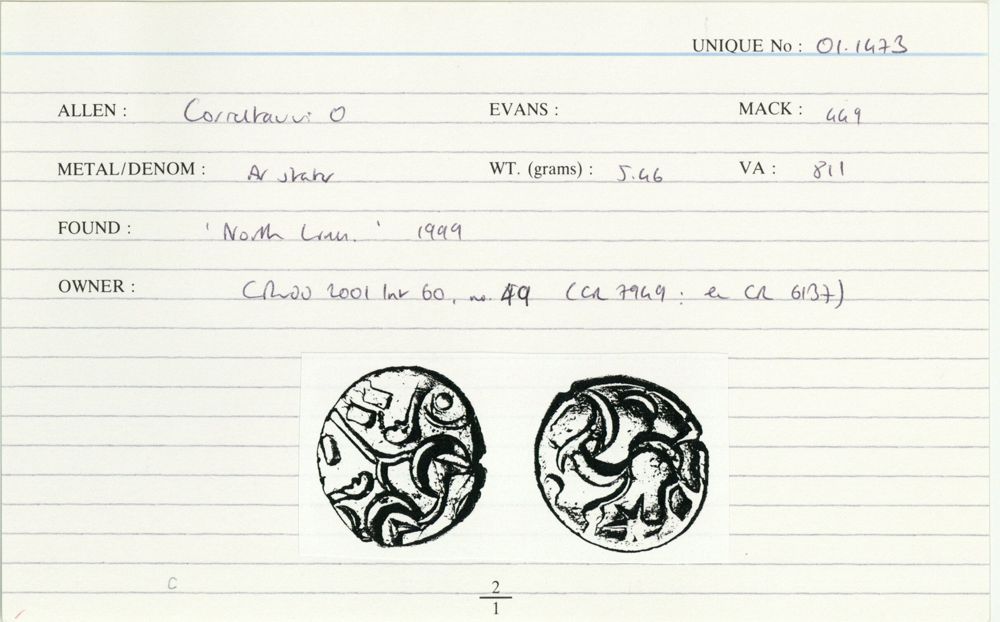 UNIQUE No : 01.1473
ALLEN : Corieltauvi O EVANS : MACK : 449
METAL/DENOM : AV stater WT. (grams) : 5.46 VA : 811
FOUND : 'North Lincs.' 1999
OWNER : 2001 60, no. 49 (CR 7949 : ex CR 6137)
C
2
1